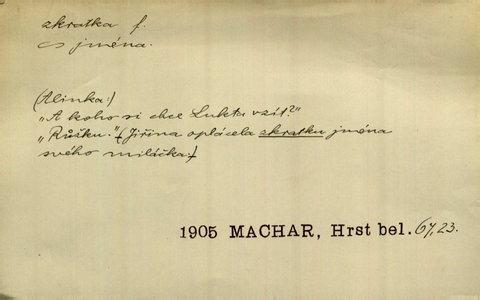 zkratka f.
~ jména.
(Alinka:)
"A koho si chce Lukta vzít?"
"Růžku." (Jiřina oplácela zkratku jména
svého miláčka.)
1905 MACHAR, Hrst bel. 67,23.